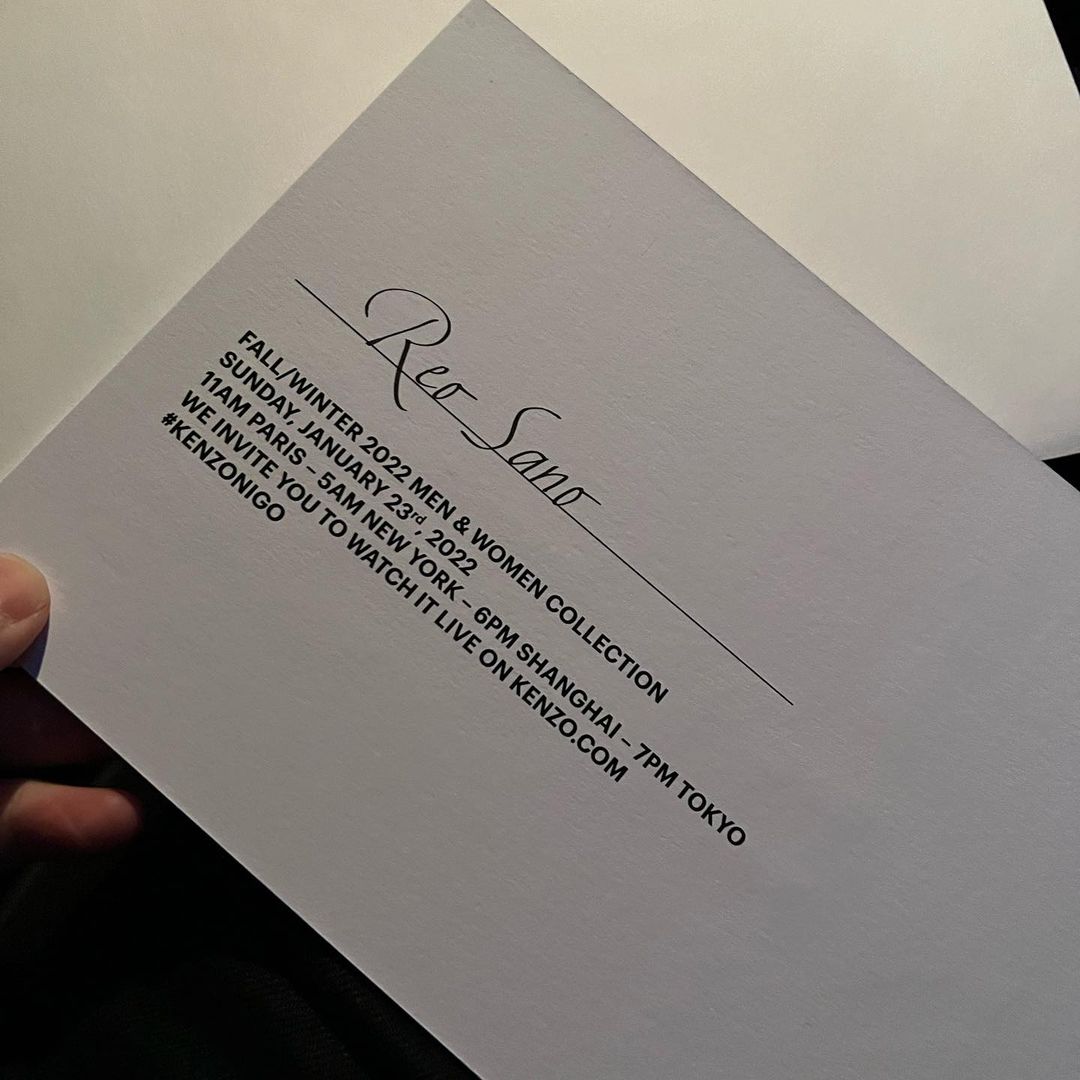 Reo Sano
FALL/WINTER 2022 MEN & WOMEN COLLECTION
SUNDAY, JANUARY 23rd, 2022
11AM PARIS – 5AM NEW YORK – 6PM SHANGHAI – 7PM TOKYO
WE INVITE YOU TO WATCH IT LIVE ON KENZO.COM
#KENZONIGO